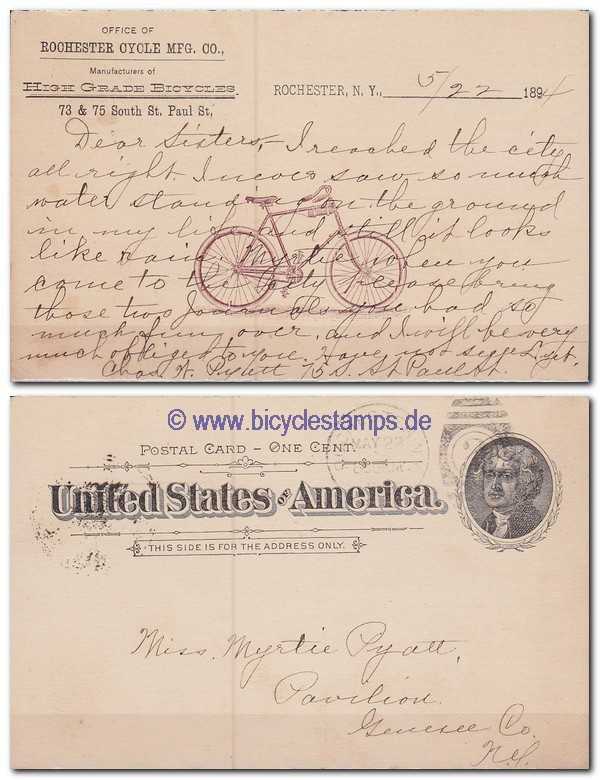 OFFICE OF
ROCHESTER CYCLE MFG. CO.,
Manufacturers of
HIGH GRADE BICYCLES.
73 & 75 South St. Paul St,
ROCHESTER, N. Y., 5/22 1894
Dear Sisters, I reached the city
all right. I never saw so much
water standing on the ground
in my life and still it looks
like rain. Myrtie when you
come to the city please bring
those two Journals you had so
much fun over, and I will be very
much obliged to you. Have not seen yet.
Chas. W. Pyatt 75 S. St Paul St.
© www.bicyclestamps.de
MAY 22
POSTAL CARD – ONE CENT.
United States of America.
THIS SIDE IS FOR THE ADDRESS ONLY.
Miss. Myrtie Pyatt,
Pavilion
Genesee Co.
N.Y.